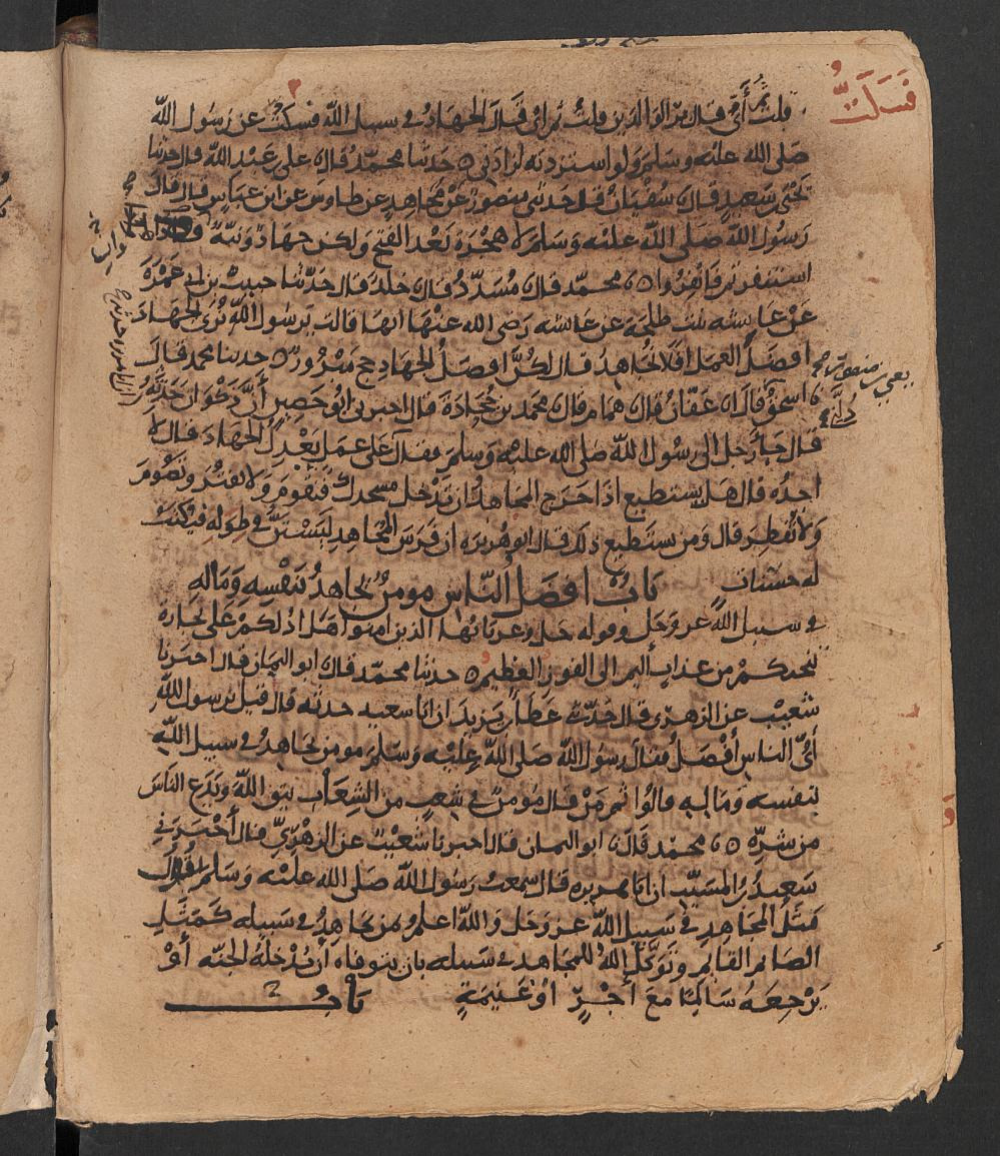 فسكتُّ
قلت ثم أي قال بر الوالدين قلت ثم اي قال الجهاد في سبيل الله فسكت عن رسول الله
صلى الله عليه وسلم ولو استزدته لزادني ٥ حدثنا محمد قال علي عبد الله قال حدثنا
يحيى سعيد قال سفيان قال حدثني منصور عن مجاهد عن طاوس عن ابن عباس قال قال
رسول الله صلى الله عليه وسلم لا هجرة بعد الفتح ولكن جهاد ونية
استنفرتم فانفروا ٥ محمد قال مسدد قال خلد قال حدثنا حبيب بن ابي عمرة
عن عايشه بنت طلحة عن عايشه رضى الله عنها انها قالت يرسول الله نرى الجهاد
افضل العمل افلا نجاهد قال لكن افضل الجهاد حج مبرور ٥ حدثنا محمد قال
اسحق قال عفان قال همام قال محمد بن جحادة قال اخبرني ابو حصين أن ذكوان حدثه
قال جا رجل الى رسول الله صلى الله عليه وسلم فقال على عمل يعدل الجهاد قال لا
اجده قال هل يستطيع اذا خرج المجاهد ان تدخل مسجدك فتقوم ولا تفتر وتصوم
ولا تفطر قال ومن يستطيع ذلك قال ابو هريره ان فرس المجاهد ليستن في طوله فيكتب
له حسنات باب افضل الناس مومن يجاهد بنفسه وماله
في سبيل الله عز وجل وقوله جل وعز يايها الذين امنوا هل ادلكم على تجارة
تنجيكم من عذاب اليم الى الفوز العظيم ٥ حدثنا محمد قال ابو اليمان قال اخبرنا
شعيب عن الزهري قال حدثني عطا بن يزيد ان ابا سعيد حدثه قال قيل يرسول الله
أي الناس أفضل فقال رسول الله صلى الله عليه وسلم مومن يجاهد في سبيل الله
بنفسه وماله قالوا ثم من قال مؤمن في شعب من الشعاب يتق الله ويدع الناس
من شره ٥ محمد قال ابو اليمان قال اخبرنا شعيب عن الزهري قال أخبرني
سعيد بن المسيب ان ابا هريره قال سمعت رسول الله صلى الله عليه وسلم يقول
مثل المجاهد في سبيل الله عز وجل والله اعلم بمن يجاهد في سبيله كمثل
الصايم القايم وتوكل الله للمجاهد في سبيله بان يتوفاه أن يدخله الجنه أو
يرجعه سالما مع أجر أو غنيمة باب